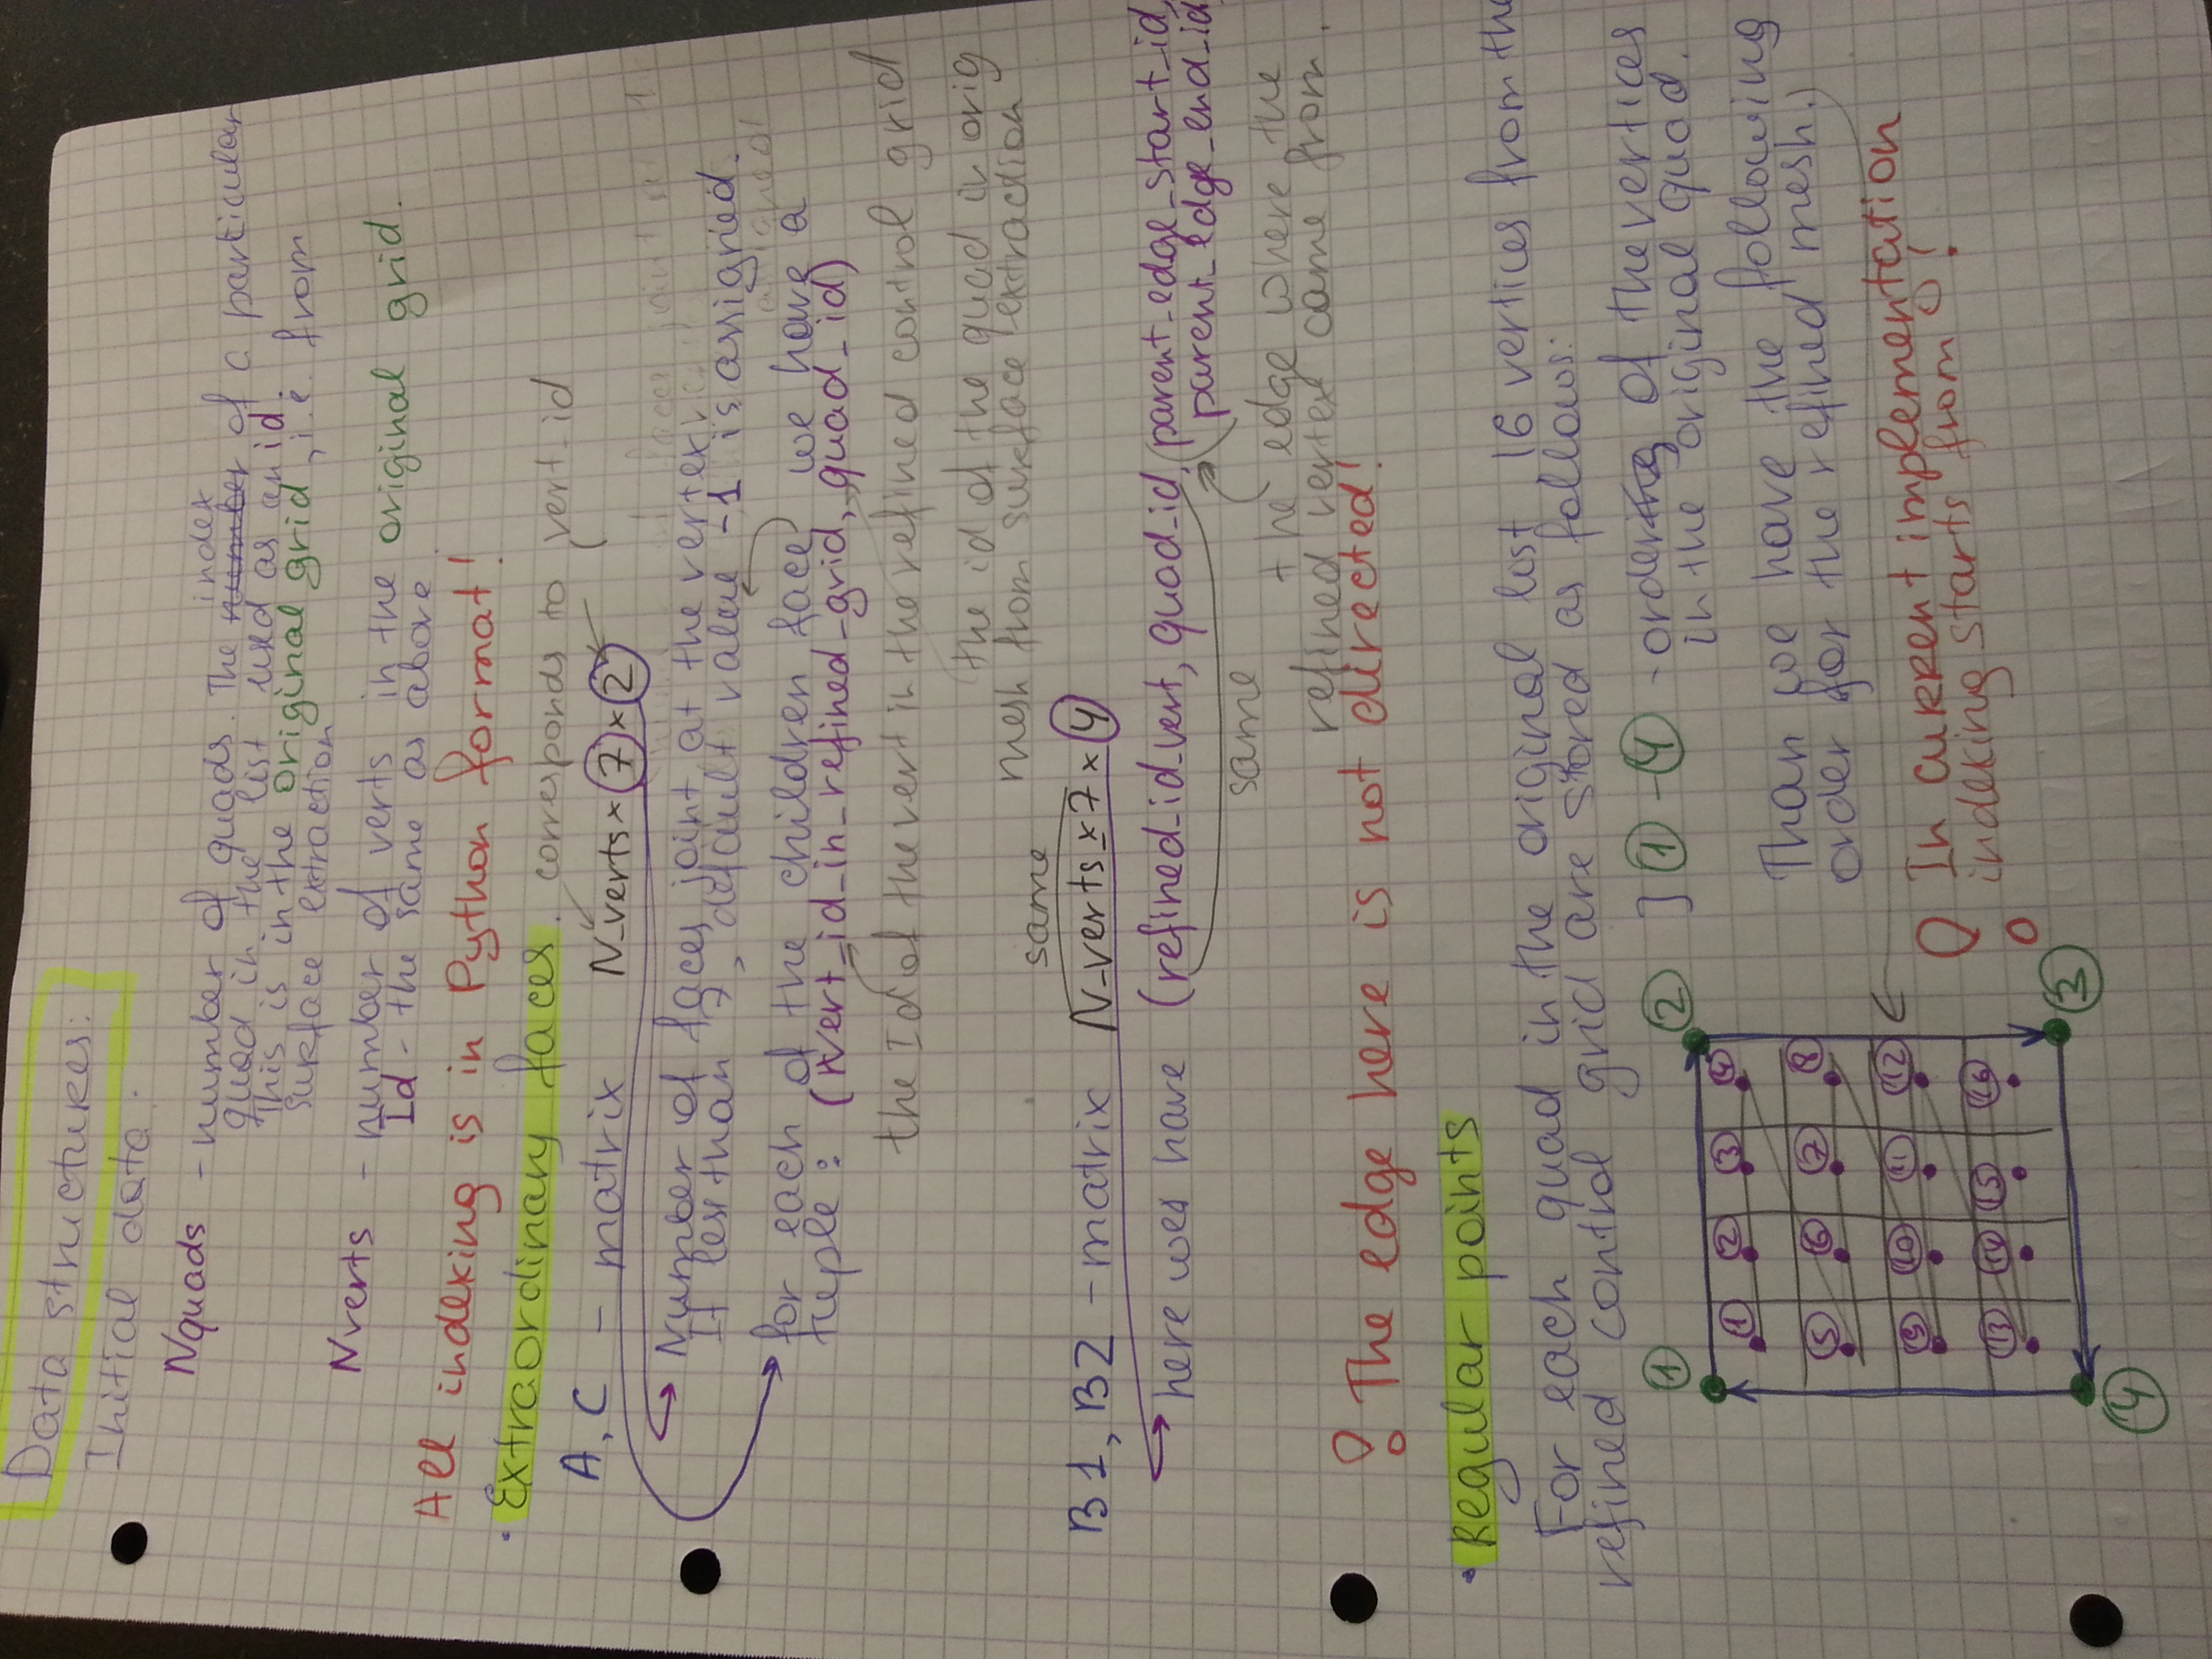 Data structures:
Initial data:
Nquads - number of quads. The number index of a particular
quad in the list used as an id.
This is in the original grid, i.e. from
surface extraction
Nverts - number of verts in the original grid.
Id - the same as above
All indexing is in Python format!
• Extraordinary faces.
corresponds to vert_id
A, C - matrix N_verts × 7 × 2
Number of faces joint at the vertex
If less than 7, default value -1 is assigned.
for each of the children face we have a
tuple: (vert_id_in_refined_grid, quad_id)
the Id of the vert in the refined control grid
the id of the quad in orig
mesh from surface extraction
same
B1, B2 - matrix N_verts × 7 × 4
here we have (refined_id_vert, quad_id, parent_edge_start_id,
parent_edge_end_id
same
the edge where the
refined vertex came from.
! The edge here is not directed!
• Regular points
For each quad in the original list 16 verties from the
refined control grid are stored as follows:
1 2 3 4
1 2 3 4
5 6 7 8
9 10 11 12
13 14 15 16
] 1 - 4 - ordering of the vertices
in the original quad.
Than we have the following
order for the refined mesh.)
! In current implementation
indexing starts from 0!